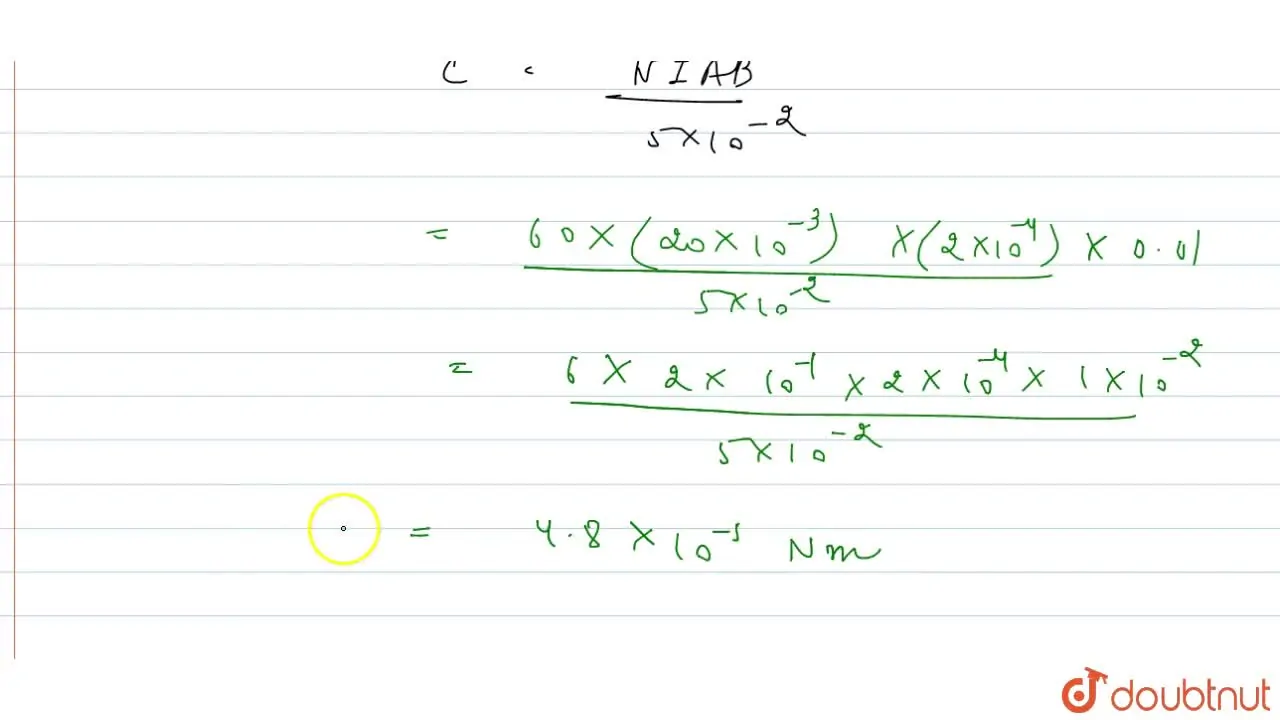 C = NIAB
5×10^-2
= 60×(20×10^-3) ×(2×10^-4) × 0.01
5×10^-2
= 6 × 2 × 10^-1 × 2 × 10^-4 × 1 × 10^-2
5×10^-2
= 4.8 × 10^-5 Nm
doubtnut